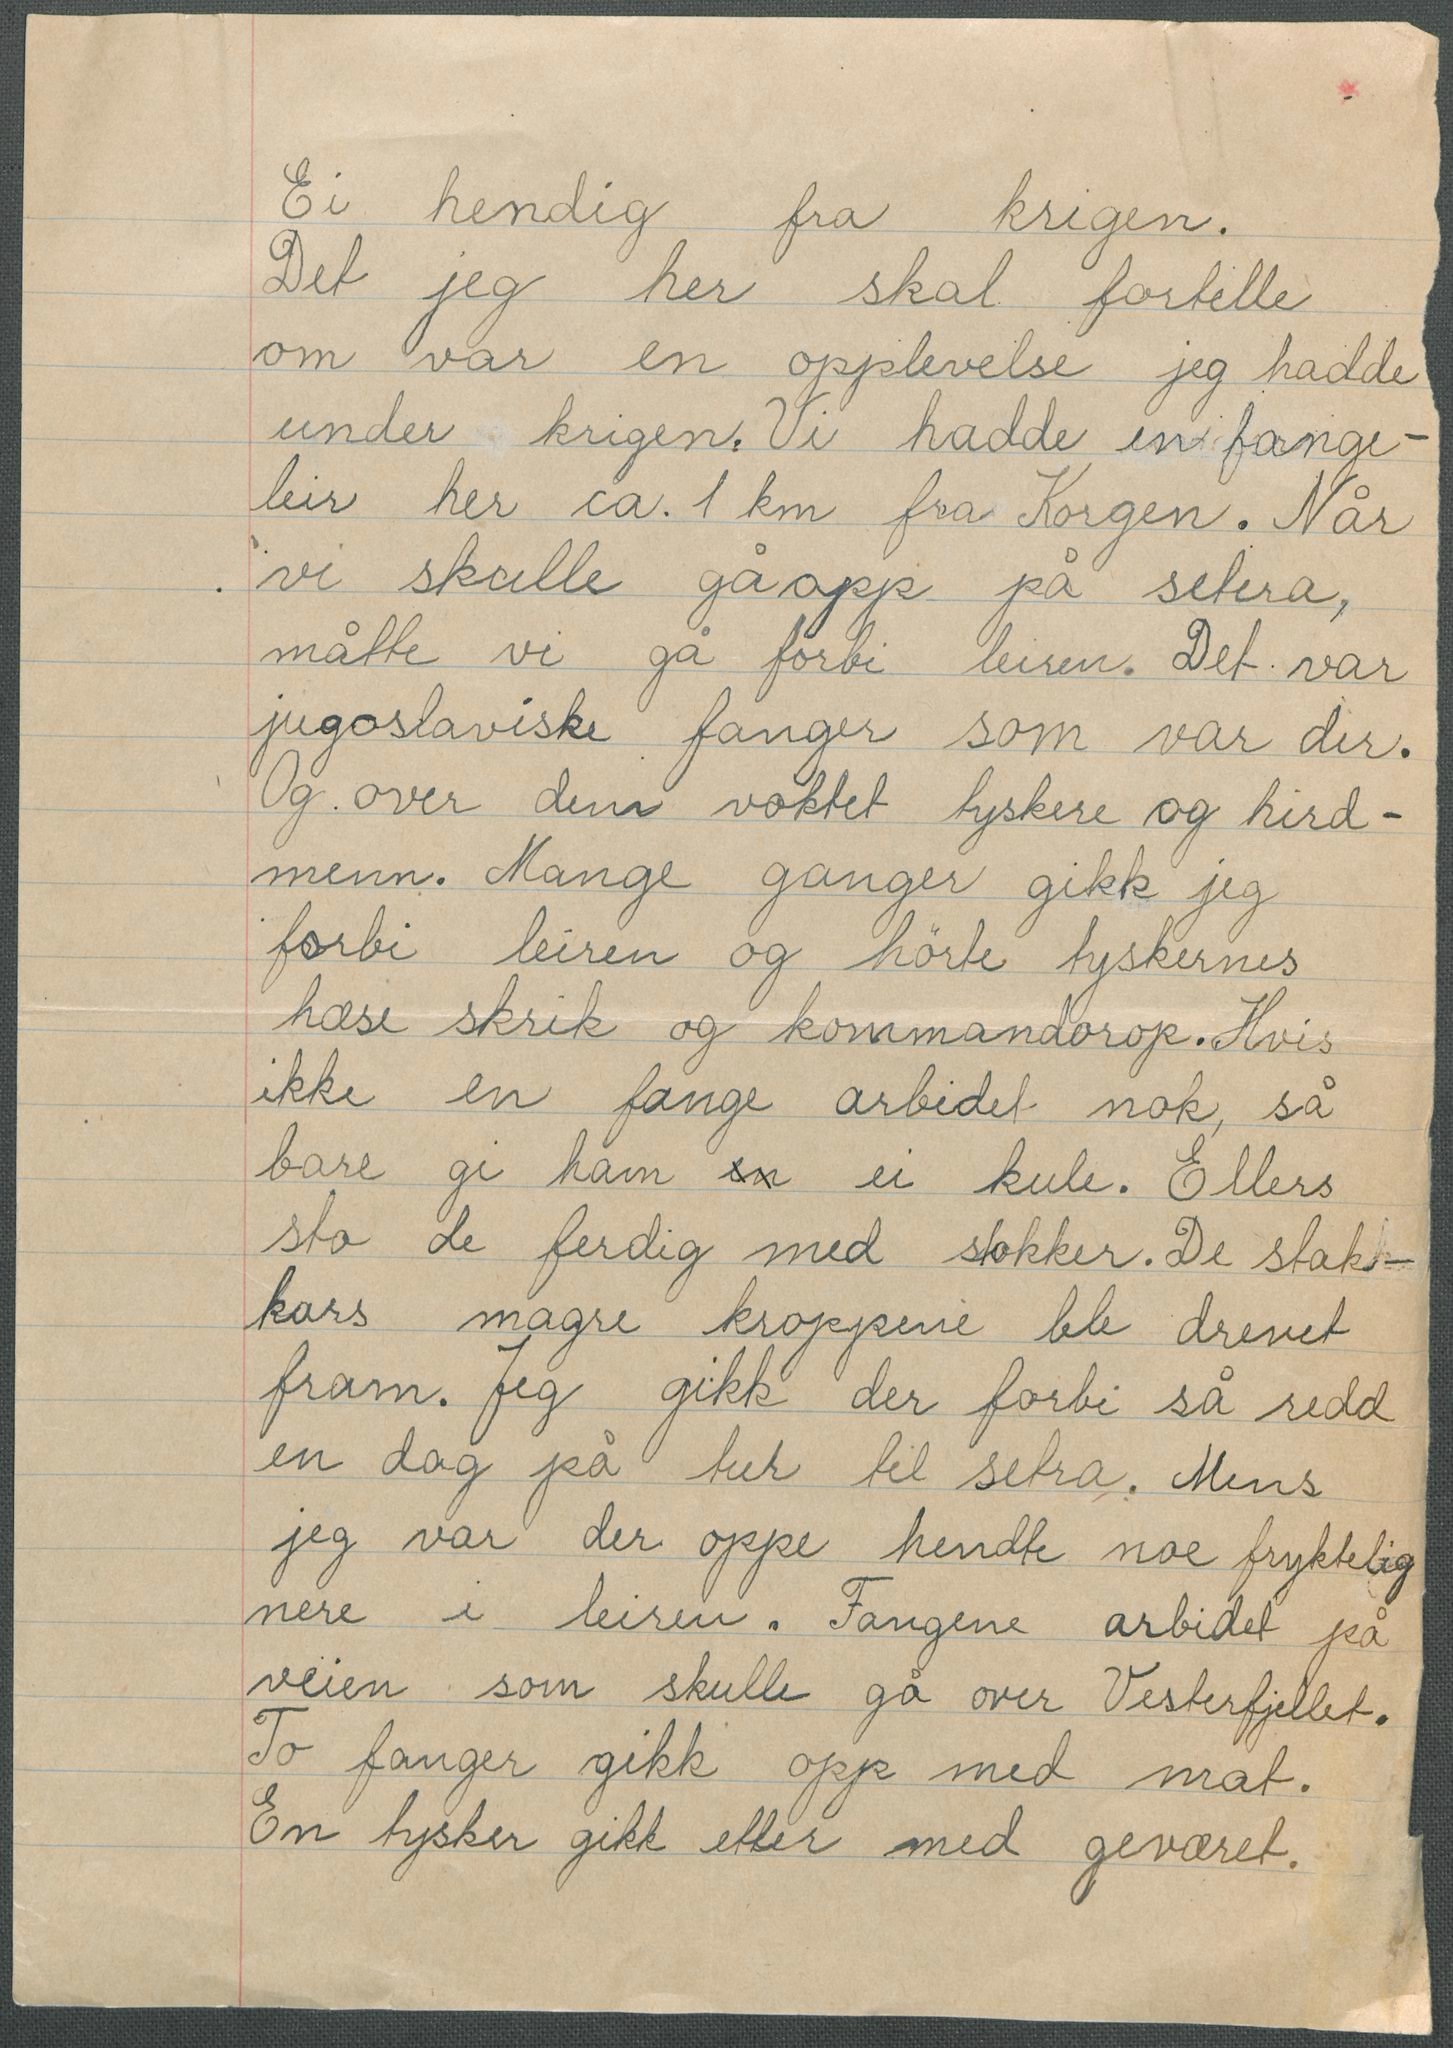 Ei hendig fra krigen.
Det jeg her skal fortelle
om var en opplevelse jeg hadde
under krigen. Vi hadde en fange-
leir her ca. 1 km fra Korgen. Når
vi skulle gå opp på setera,
måtte vi gå forbi leiren. Det var
jugoslaviske fanger som var der.
Og over dem voktet tyskere og hird-
menn. Mange ganger gikk jeg
forbi leiren og hörte tyskernes
hæse skrik og kommandorop. Hvis
ikke en fange arbidet nok, så
bare gi ham en ei kule. Ellers
sto de ferdig med stokker. De stak-
kars magre kroppene ble drevet
fram. Jeg gikk der forbi så redd
en dag på tur til setra. Mens
jeg var der oppe hendte noe fryktelig
nere i leiren. Fangene arbidet på
veien som skulle gå over Vesterfjellet.
To fanger gikk opp med mat.
En tysker gikk etter med geværet.